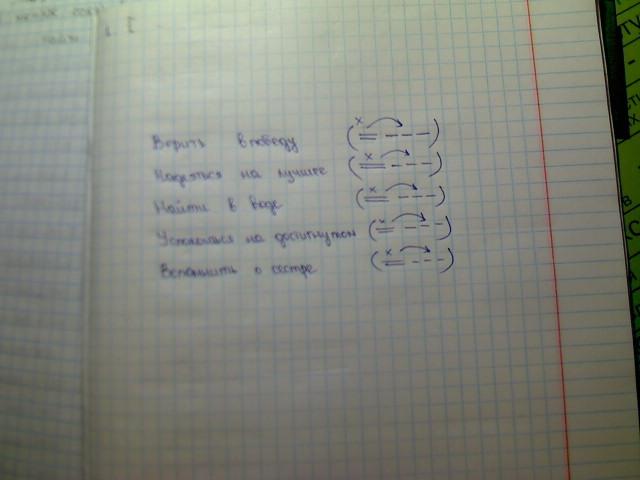 Верить в победу
Надеяться на лучшее
Найти в воде
Успокоиться на достигнутом
Вспомнить о сестре